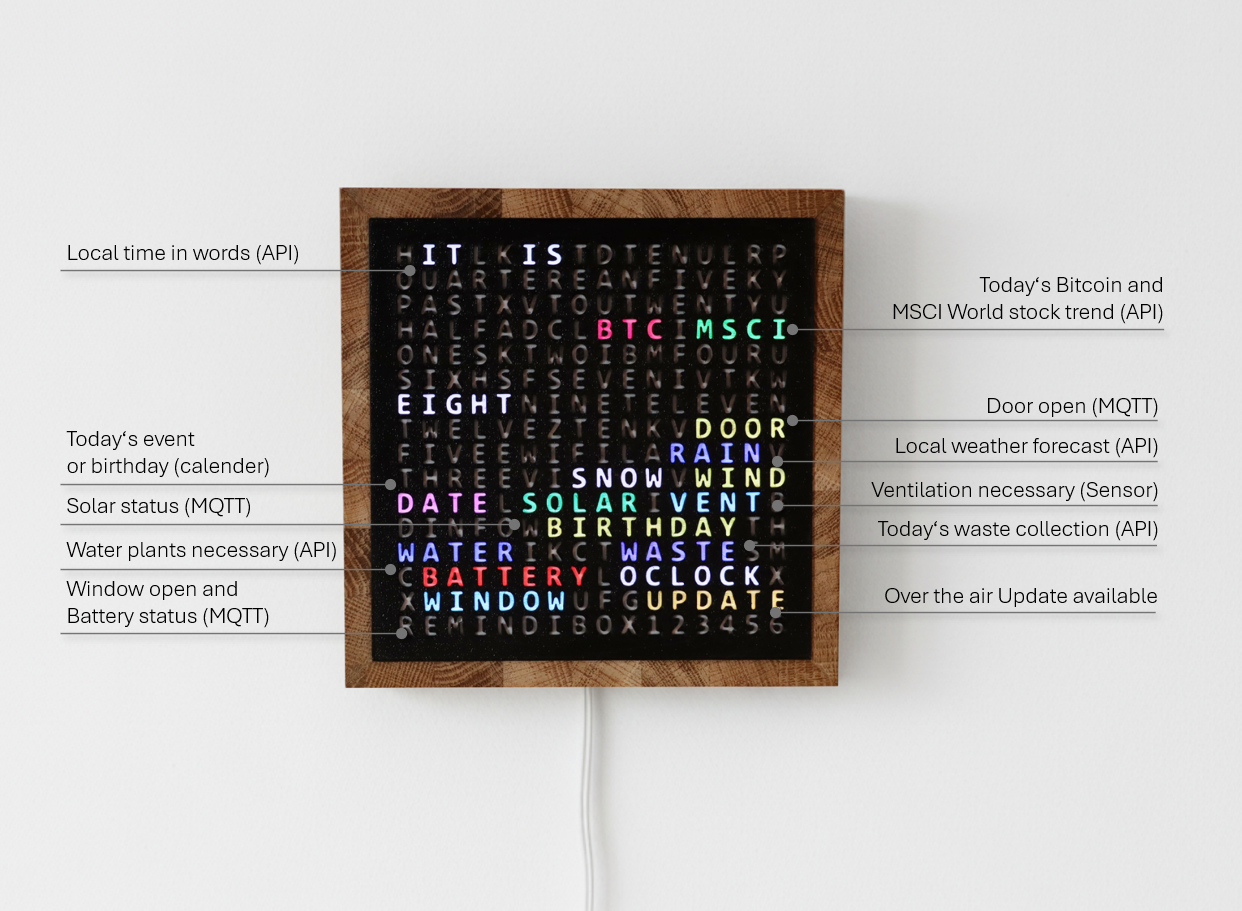 Local time in words (API)
Today‘s event
or birthday (calender)
Solar status (MQTT)
Water plants necessary (API)
Window open and
Battery status (MQTT)
HITLKISTDTENULRP
QUARTEREANFIVEKY
PASTXVTOUTWENTYU
HALFADCLBTCIMSCI
ONESKTWOIBMFOURU
SIXHSFSEVENIVTKW
EIGHTNINETELEVEN
TWELVEZTENKVDOOR
FIVEEWIFILARAINV
THREEVISNOWVWIND
DATELSOLARIVENTB
DINFOWBIRTHDAYTH
WATERIKCTWASTESM
CBATTERYLOCLOCKX
XWINDOWUFGUPDATE
REMINDIBOX123456
Today‘s Bitcoin and
MSCI World stock trend (API)
Door open (MQTT)
Local weather forecast (API)
Ventilation necessary (Sensor)
Today‘s waste collection (API)
Over the air Update available